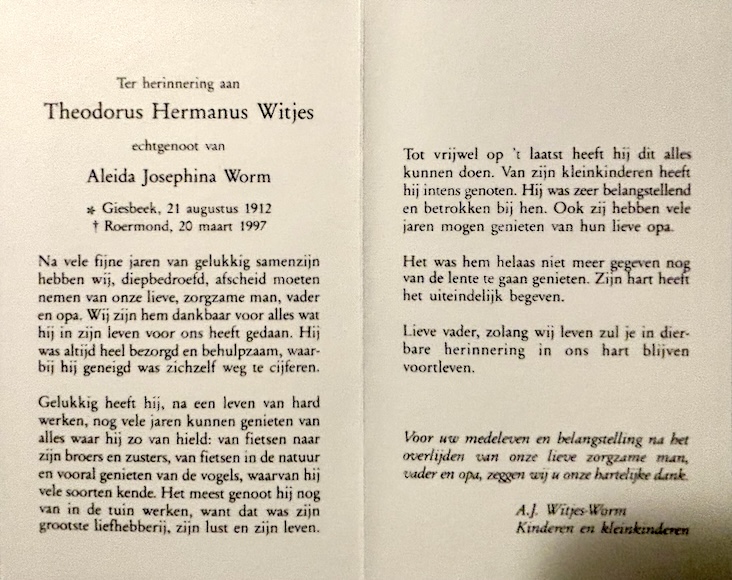 Ter herinnering aan
Theodorus Hermanus Witjes
echtgenoot van
Aleida Josephina Worm
* Giesbeek, 21 augustus 1912
† Roermond, 20 maart 1997
Na vele fijne jaren van gelukkig samenzijn
hebben wij, diepbedroefd, afscheid moeten
nemen van onze lieve, zorgzame man, vader
en opa. Wij zijn hem dankbaar voor alles wat
hij in zijn leven voor ons heeft gedaan. Hij
was altijd heel bezorgd en behulpzaam, waar-
bij hij geneigd was zichzelf weg te cijferen.
Gelukkig heeft hij, na een leven van hard
werken, nog vele jaren kunnen genieten van
alles waar hij zo van hield: van fietsen naar
zijn broers en zusters, van fietsen in de natuur
en vooral genieten van de vogels, waarvan hij
vele soorten kende. Het meest genoot hij nog
van in de tuin werken, want dat was zijn
grootste liefhebberij, zijn lust en zijn leven.
Tot vrijwel op 't laatst heeft hij dit alles
kunnen doen. Van zijn kleinkinderen heeft
hij intens genoten. Hij was zeer belangstellend
en betrokken bij hen. Ook zij hebben vele
jaren mogen genieten van hun lieve opa.
Het was hem helaas niet meer gegeven nog
van de lente te gaan genieten. Zijn hart heeft
het uiteindelijk begeven.
Lieve vader, zolang wij leven zul je in dier-
bare herinnering in ons hart blijven
voortleven.
Voor uw medeleven en belangstelling na het
overlijden van onze lieve zorgzame man,
vader en opa, zeggen wij u onze hartelijke dank.
A.J. Witjes-Worm
Kinderen en kleinkinderen